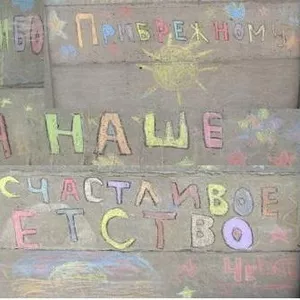 ИБО ПРИБРЕЖНОМУ
А НАШЕ
СЧАСТЛИВОЕ
ЕТСТВО